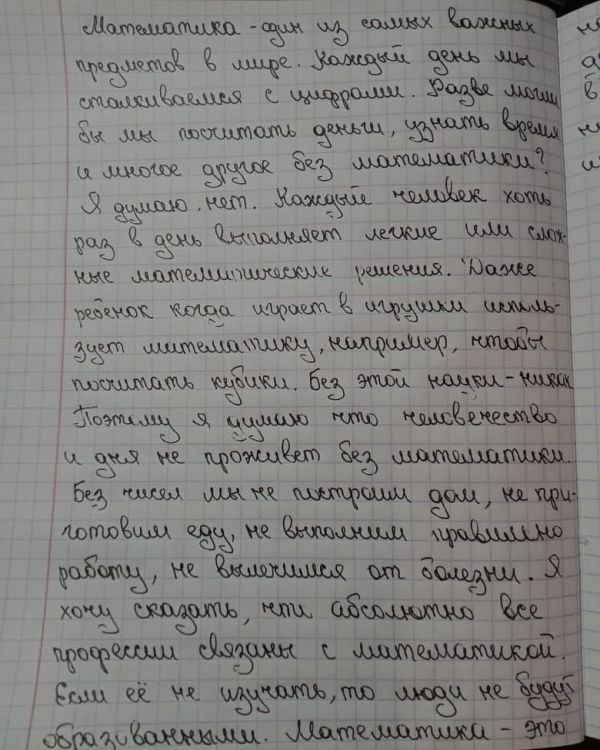 Математика - один из самых важных
предметов в мире. Каждый день мы
сталкиваемся с цифрами. Разве могли
бы мы посчитать деньги, узнать время
и многое другое без математики?
Я думаю, нет. Каждый человек хоть
раз в день выполняет легкие или слож-
ные математические решения. Даже
ребенок когда играет в игрушки исполь-
зует математику, например, чтобы
посчитать кубики. Без этой науки - никак
Поэтому я думаю что человечество
и дня не проживет без математики.
Без чисел мы не построим дом, не при-
готовим еду, не выполним правильно
работу, не вылечимся от болезни. Я
хочу сказать, что абсолютно все
профессии связаны с математикой.
Если её не изучать, то люди не будут
образованными. Математика - это